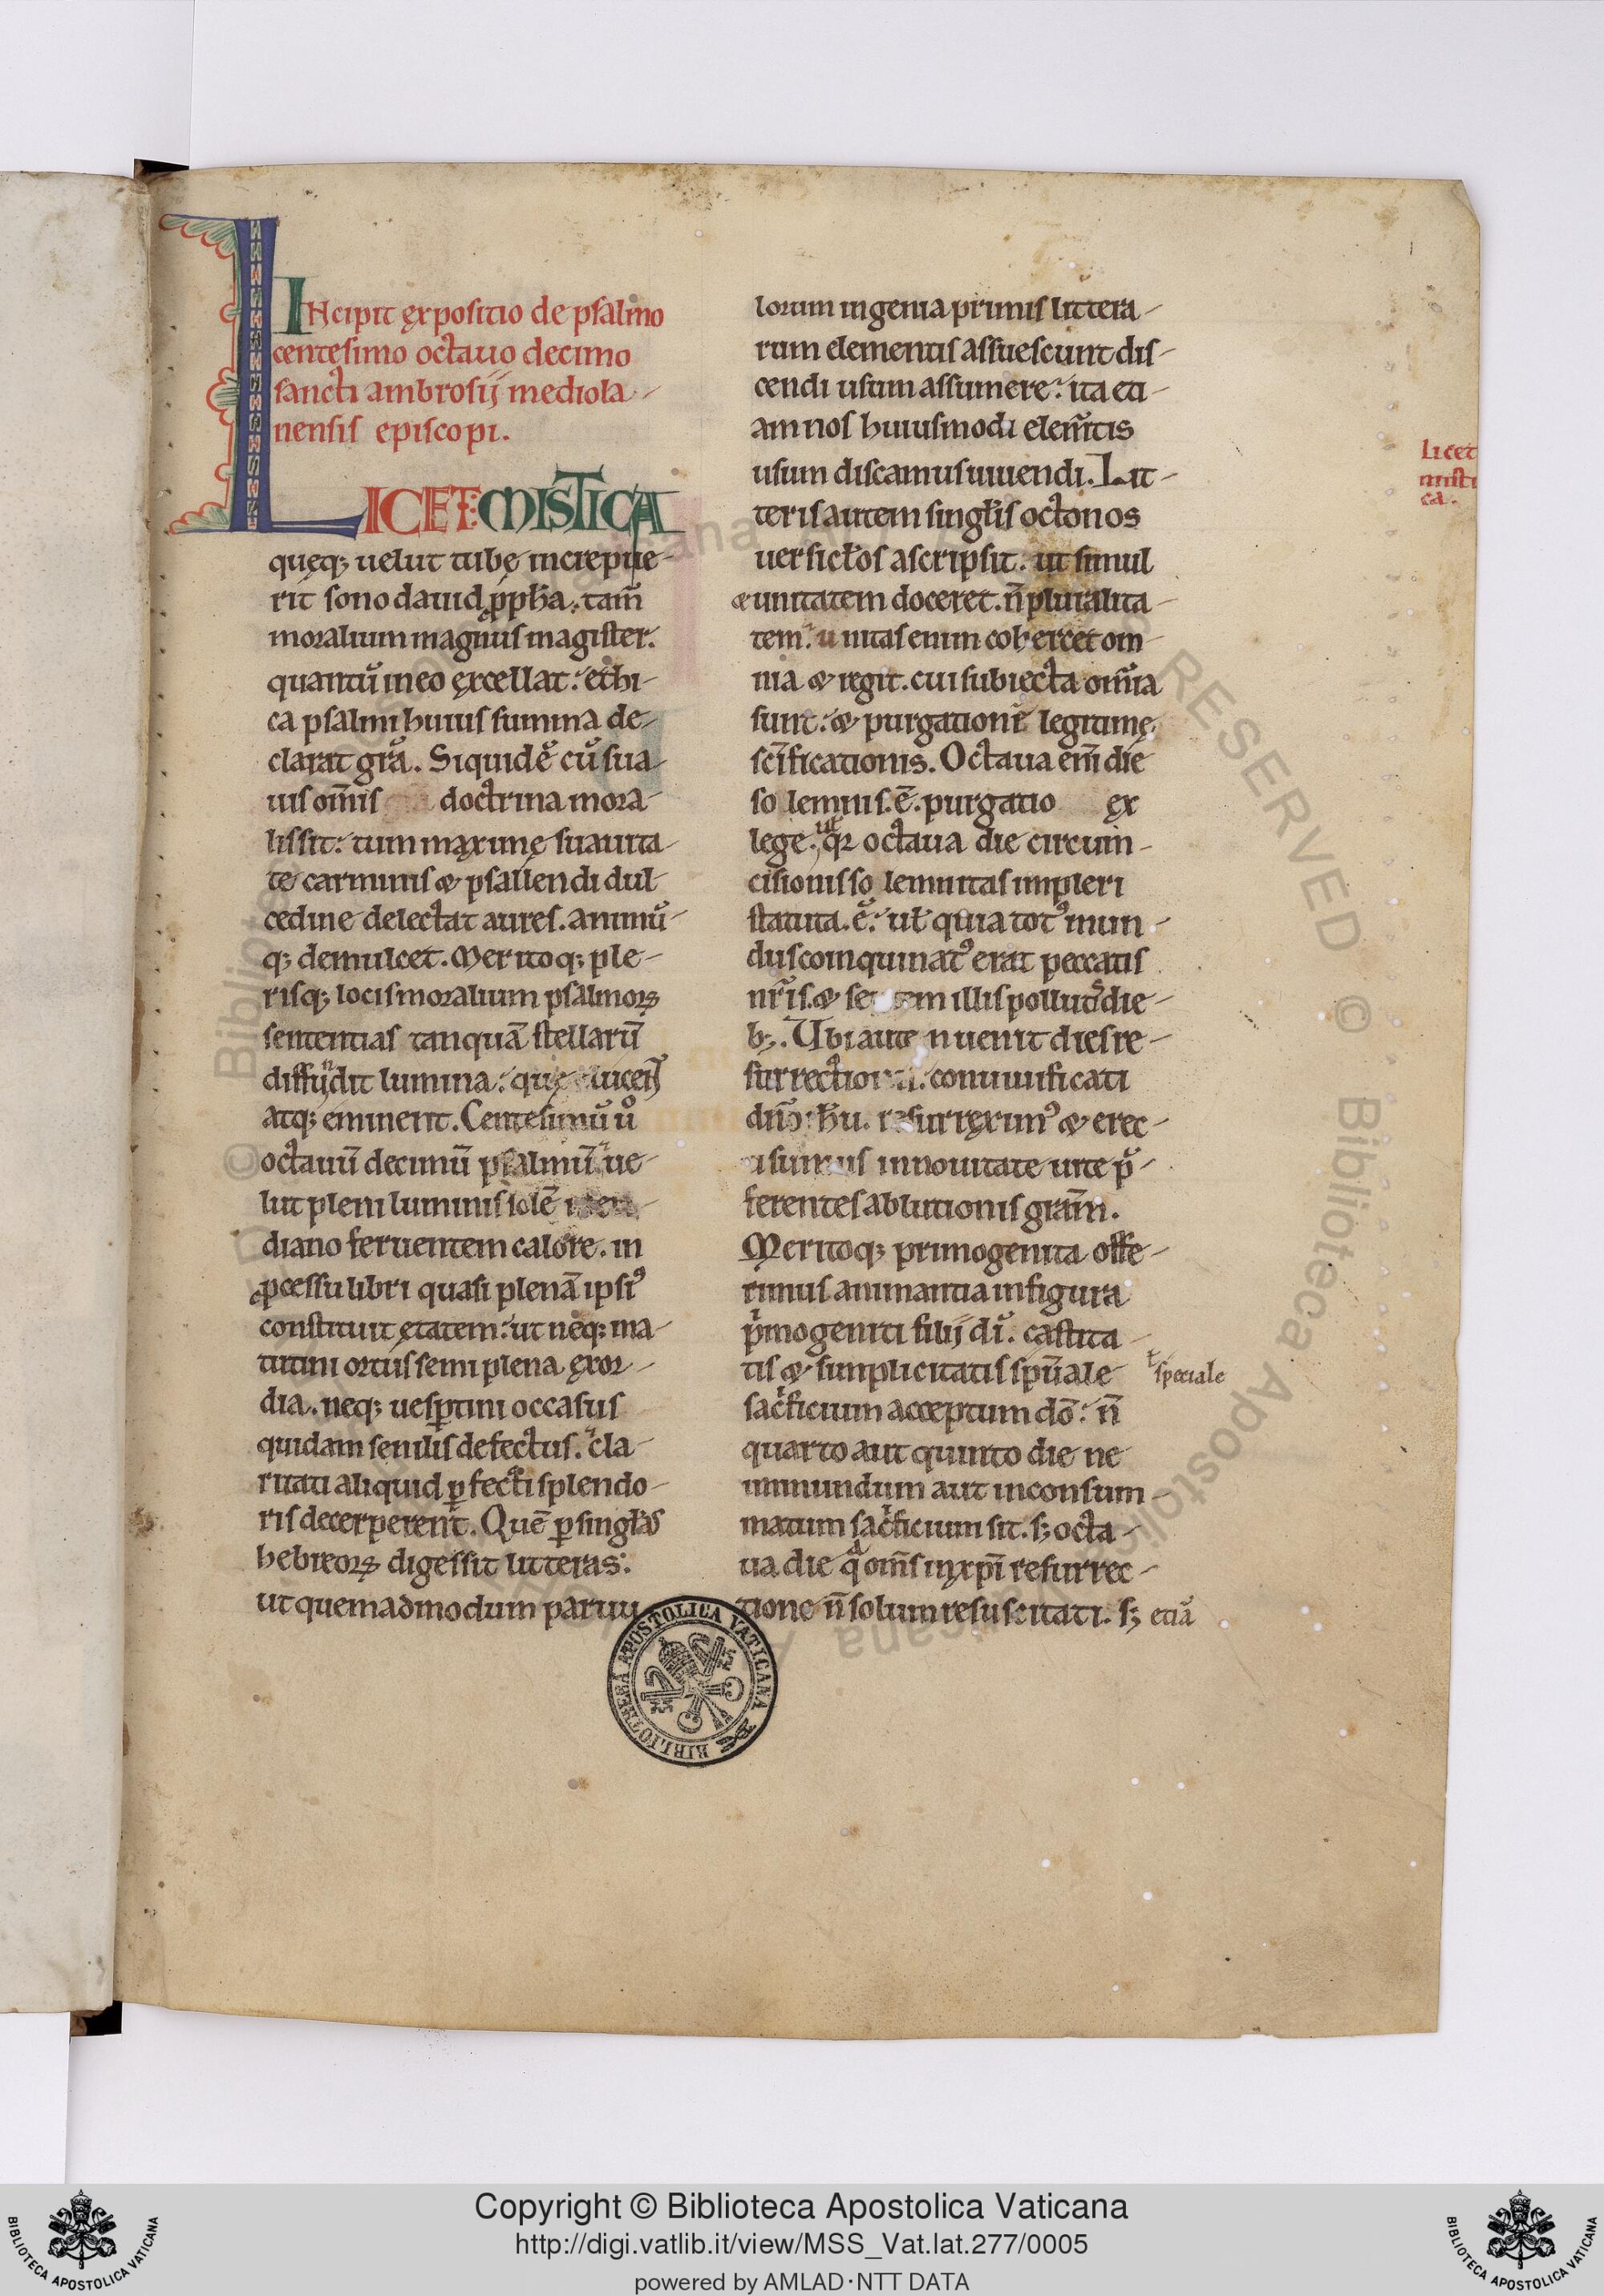 INcipit ęxpositio de psalmo
centesimo octauo decimo
sancti ambrosij mediola-
nensis episcopi.
LICET: MISTICA
quęq; uelut tubę increpue-
rit sono dauid ꝓph̄a. tam̄
moralium magnus magister.
quantū in eo ęxcellat. ethi-
ca psalmi huius summa de-
clarat gr̄a. Siquidē cū sua-
uis om̄is doctrina mora-
lis sit: tum maxime suauita-
te carminis & psallendi dul-
cedine delectat aures. animū-
q; demulcet. Meritoq; ple-
risq; locis moralium psalmoꝝ
sententias tanquā stellarū
diffundit lumina. quę luceant
atq; eminent. Centesimū ū
octauū decimū psalmū ue-
lut pleni luminis solē meri-
diano feruentem calore. in
ꝓcessu libri quasi plenā ipsiꝰ
constituit ętatem: ut neq; ma-
tutini ortus semiplena ęxor-
dia. neq; uesꝑtini occasus
quidam senilis defectus. cla-
ritati aliquid ꝑfecti splendo-
ris decerperent. Quē ꝑ singłas
hebreoꝝ digessit litteras:
ut quemadmodum paruu
lorum ingenia primis littera-
rum elementis assuescunt dis-
cendi usum assumere: ita eti-
am nos huiusmodi elem̄tis
usum discamus uiuendi. Lit-
teris autem singłis octonos
uersicłos ascripsit: ut simul
& unitatem doceret. n̄ pluralita-
tem. unitas enim cohercet om-
nia & regit. cui subiecta om̄ia
sunt: & purgationē legitimę
sc̄ificationis. Octaua em̄ die
solemnis. ē. purgatio ęx
lege. uł qr octaua die circum-
cisionis solemnitas impleri
statuta. ē. uł quia totꝰ mun-
dus coinquinatꝰ erat peccatis
nr̄is. & septem illis pollutꝰ die-
b;. Ubi autem uenit dies re-
surrectionis. conuiuificati
dn̄o ih̄u. resurręximꝰ & erec-
ti sumus in nouitate uite p̄-
ferentes ablutionis gram̄.
Meritoq; primogenita offe-
rimus animantia in figura
pͥmogeniti filij dī. castita-
tis & simplicitatis spūale
ł speciale
sacͥficium acceptum dō: n̄
quarto aut quinto die ne
inmundum aut inconsum-
matum sacͥficium sit. s; octa-
ua die qͣ om̄s in xp̄i resurrec-
tione n̄ solum resuscitati. s; etiā
Licet
misti
ca.
1
BIBLIOTHECA APOSTOLICA VATICANA
Copyright © Biblioteca Apostolica Vaticana
http://digi.vatlib.it/view/MSS_Vat.lat.277/0005
powered by AMLAD·NTT DATA
BIBLIOTECA APOSTOLICA VATICANA
BIBLIOTECA APOSTOLICA VATICANA